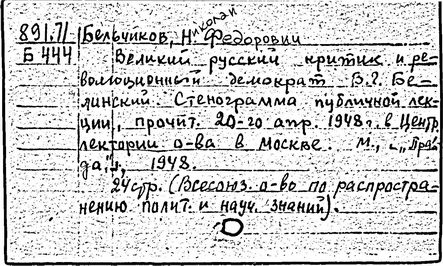 иколай
891.71 Бельчиков, Н. Федорович
Б 444 Великий русский критик и ре-
волюционный демократ В.Г. Бе-
линский. Стенограмма публичной лек-
ции, прочит. 20-го апр. 1948 г. в Центр.
лектории о-ва в Москве. М., „Прав-
да", 1948.
24 стр. (Всесоюз. о-во по распростра-
нению полит. и науч. знаний).